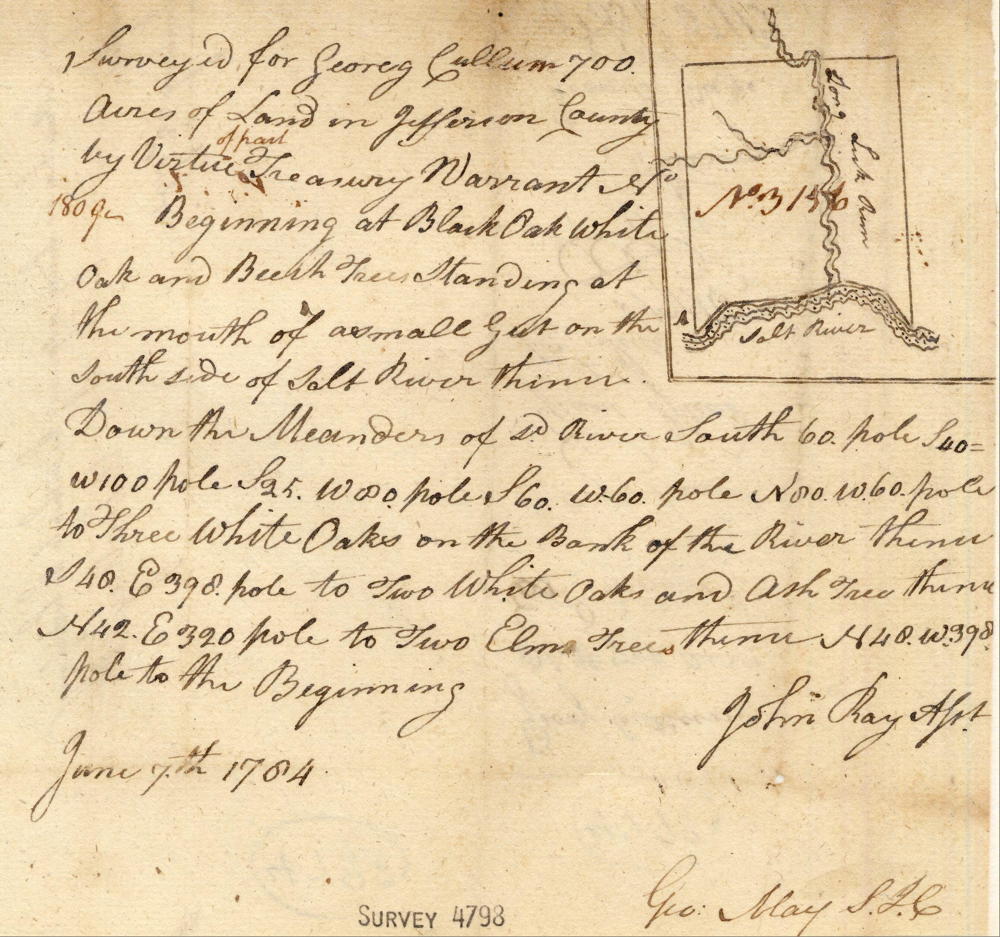 Surveyed for Georeg Cullum 700
Acres of Land in Jefferson County
of part
by Virtue Treasury Warrant No
1809 Beginning at Black Oak White
Oak and Beech Trees Standing at
the mouth of a small Gut on the
South side of Salt River thence
Down the Meanders of sd River South 60. pole S40=
W100 pole S25. W80. pole S60. W.60. pole N80.W.60.pole
to Three White Oaks on the Bank of the River thence
S48. E398. pole to Two White Oaks and Ash Tree thence
N42. E320 pole to Two Elm Trees thence N48.W.398
pole to the Beginning
John Ray Asst
June 7.th 1784
Geo: May S.J.C
SURVEY 4798
Long Lick Run
No. 3156
A
Salt River